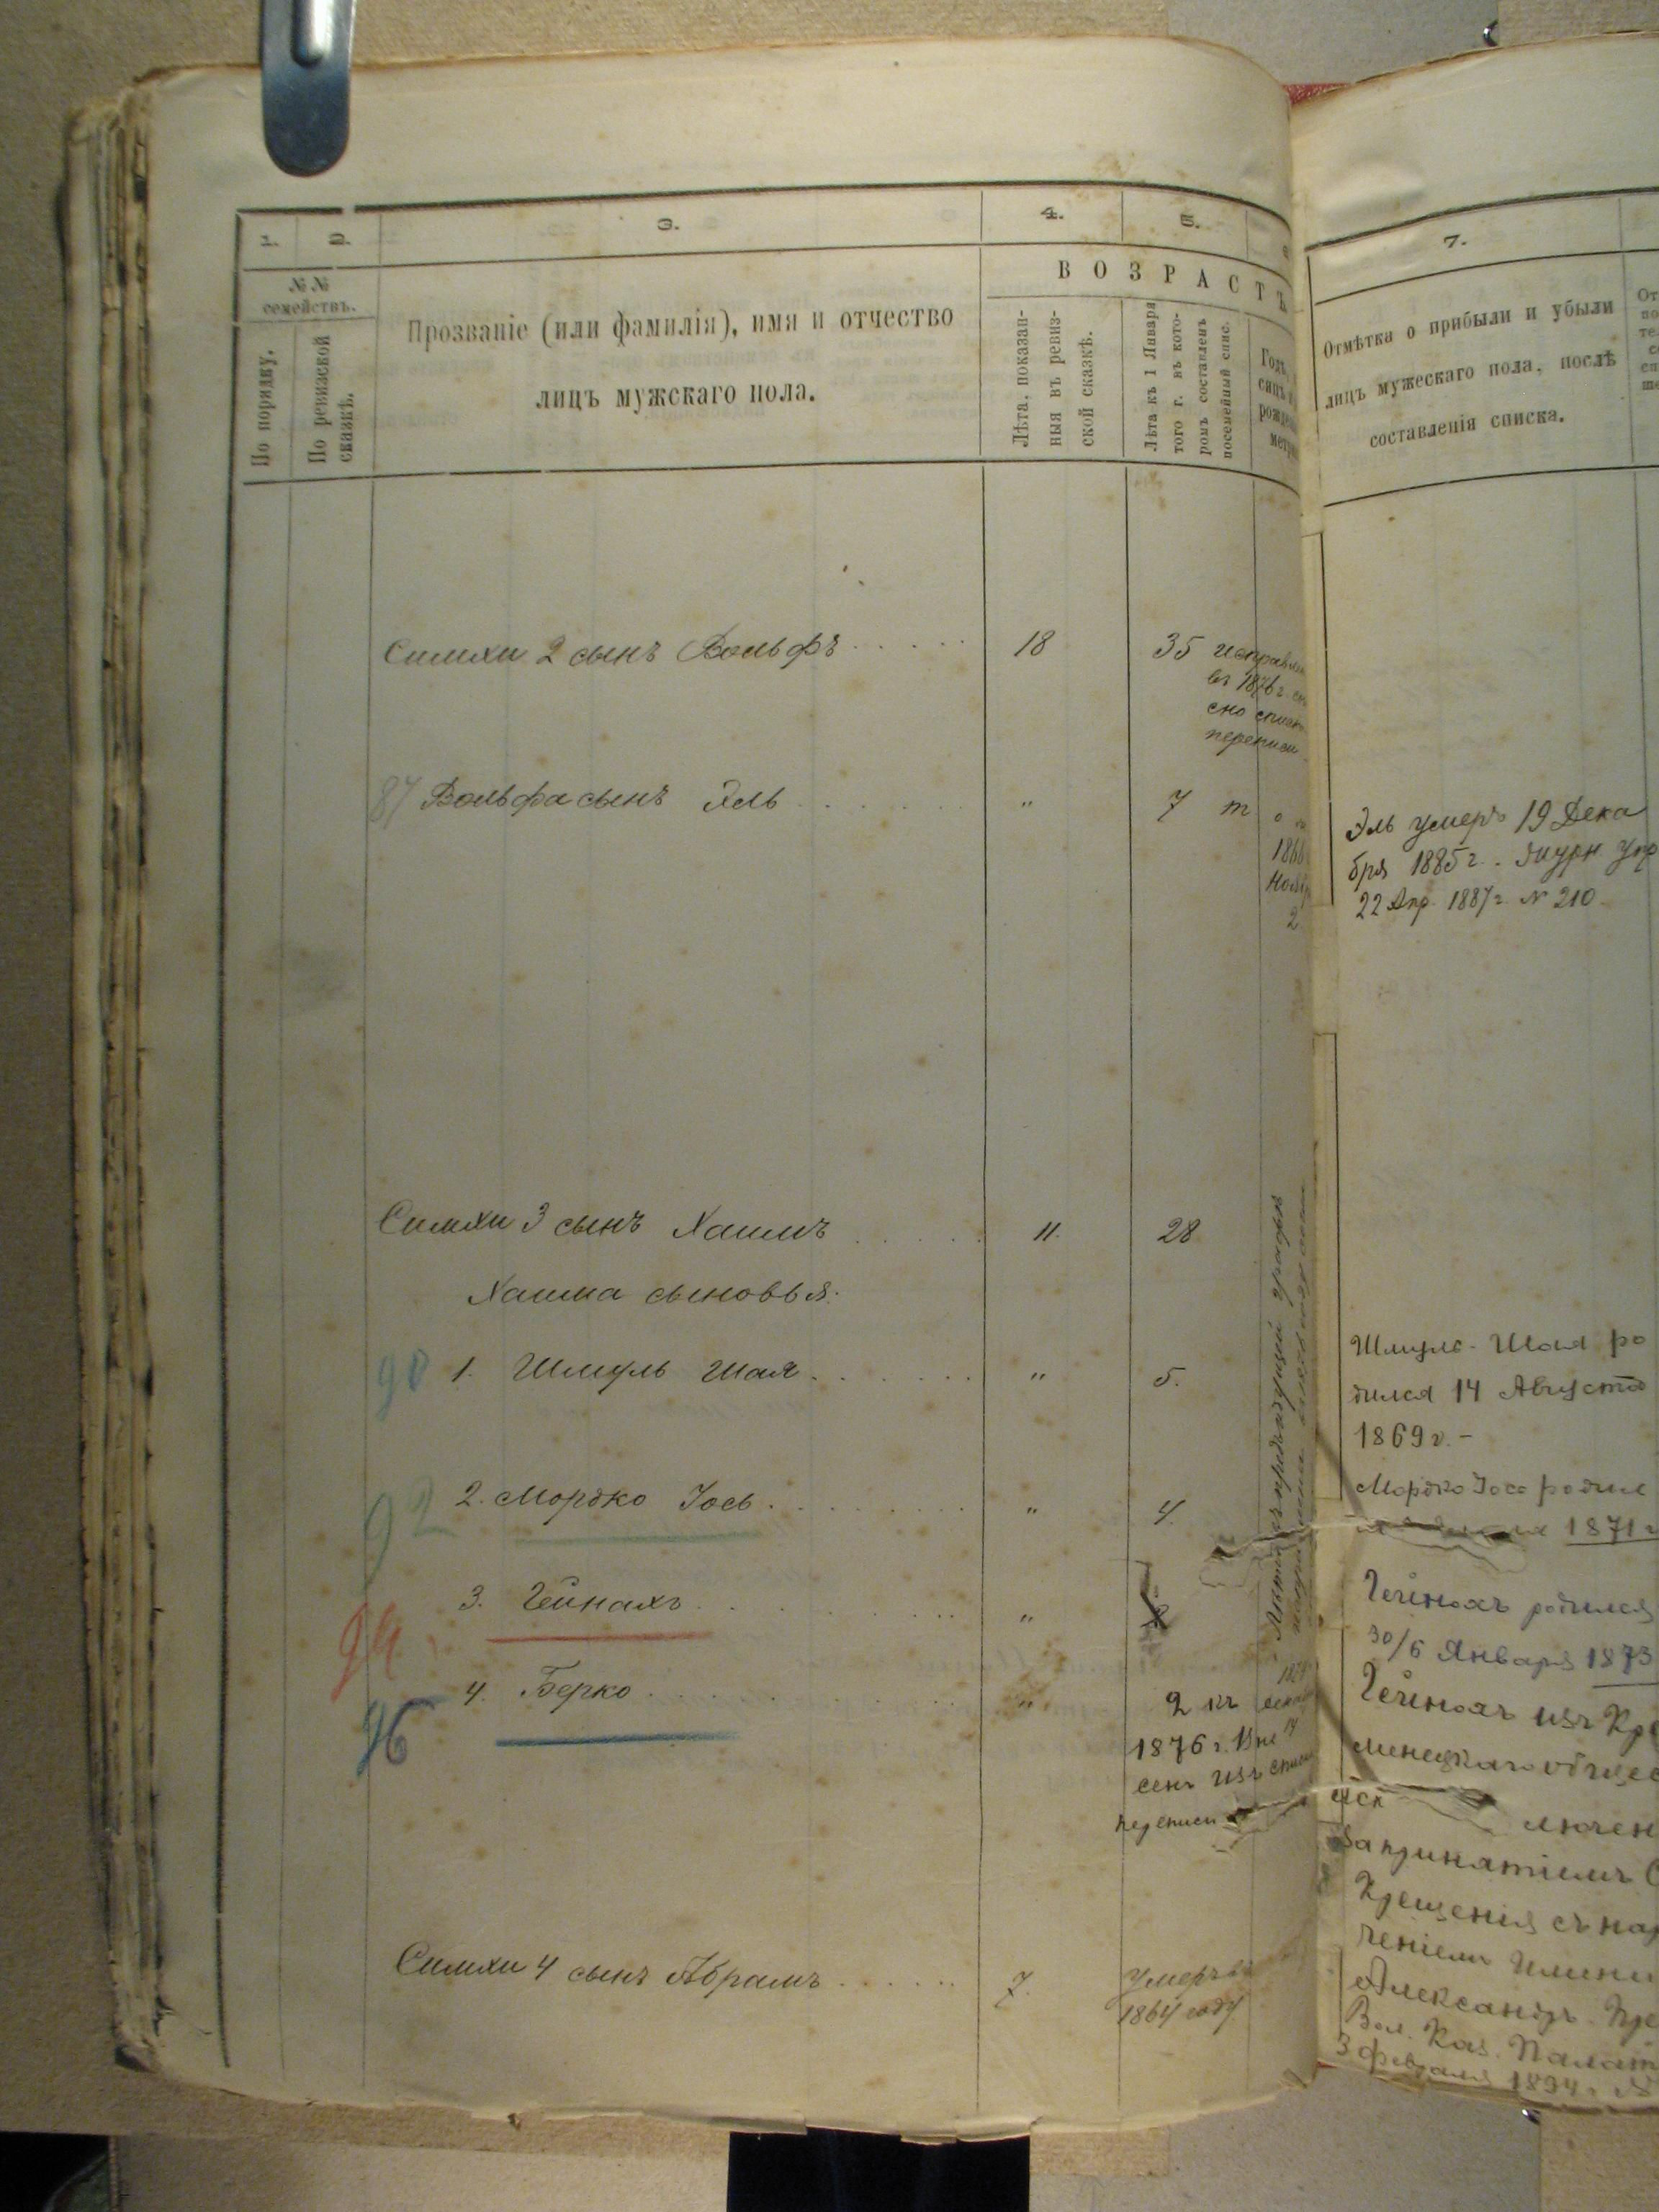 1.
2.
3.
4.
5.
7.
№№
семействъ.
По порядку.
По ревизской
сказкѣ.
Прозваніе (или фамилія), имя и отчество
лицъ мужскаго пола.
ВОЗРАСТЪ
Лѣта, показан-
ныя въ ревиз-
ской сказкѣ.
Лѣта къ 1 Января
того г. въ кото-
ромъ составленъ
посемейный спис.
Годъ,
Отмѣтка о прибыли и убыли
лицъ мужескаго пола, послѣ
составленія списка.
Симхи 2 сынъ Вольфъ
18
35
въ 1876 г.
переписи
87 Вольфа сынъ Эль
"
7
Эль умеръ 19 Дека
бря 1885 г.
22 Апр. 1887 г. № 210
Симхи 3 сынъ Хаимъ
11.
28
Хаима сыновья:
90 1. Шмуль Шая
"
5.
Шмуль-Шая ро
дился 14 Августа
1869 г. -
92 2. Мордко Іось
"
4.
Мордко Іось родил
1871
94 3. Гейнахъ
"
Гейнохъ родился
30/6 Января 1873
96 4. Берко
"
2 къ
1876 г. Вне
сенъ изъ
переписи
Гейнохъ изъ Кре
менецкаго общес
иск
лючен
за принятіемъ С
Крещенія съ нар
ченіемъ Имени
Александръ.
Вол. Каз. Палат
3 февраля 1894 г. №
Симхи 4 сынъ Абрамъ
7.
Умеръ въ
1864 году